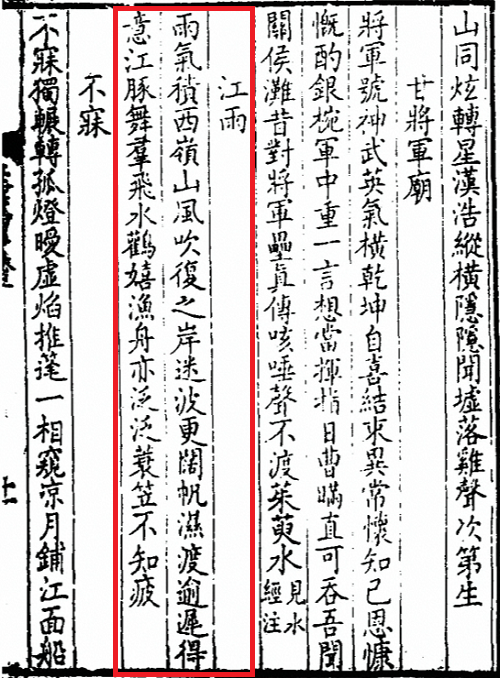 山同炫轉星漢浩縱橫隱隱聞墟落雞聲次第生
甘將軍廟
將軍號神武英氣橫乾坤自喜結束異常懷知己恩慷
慨酌銀椀軍中重一言想當揮指日曹瞞直可吞吾聞
關侯灘昔對將軍壘眞傳咳唾聲不渡茱萸水見水經注
江雨
雨氣積西嶺山風吹復之岸迷波更闊帆濕渡逾遲得
意江豚舞羣飛水鸛嬉漁舟亦泛泛蓑笠不知疲
不寐
不寐獨輾轉孤燈曖虛焰推篷一相窺凉月鋪江面船
十一